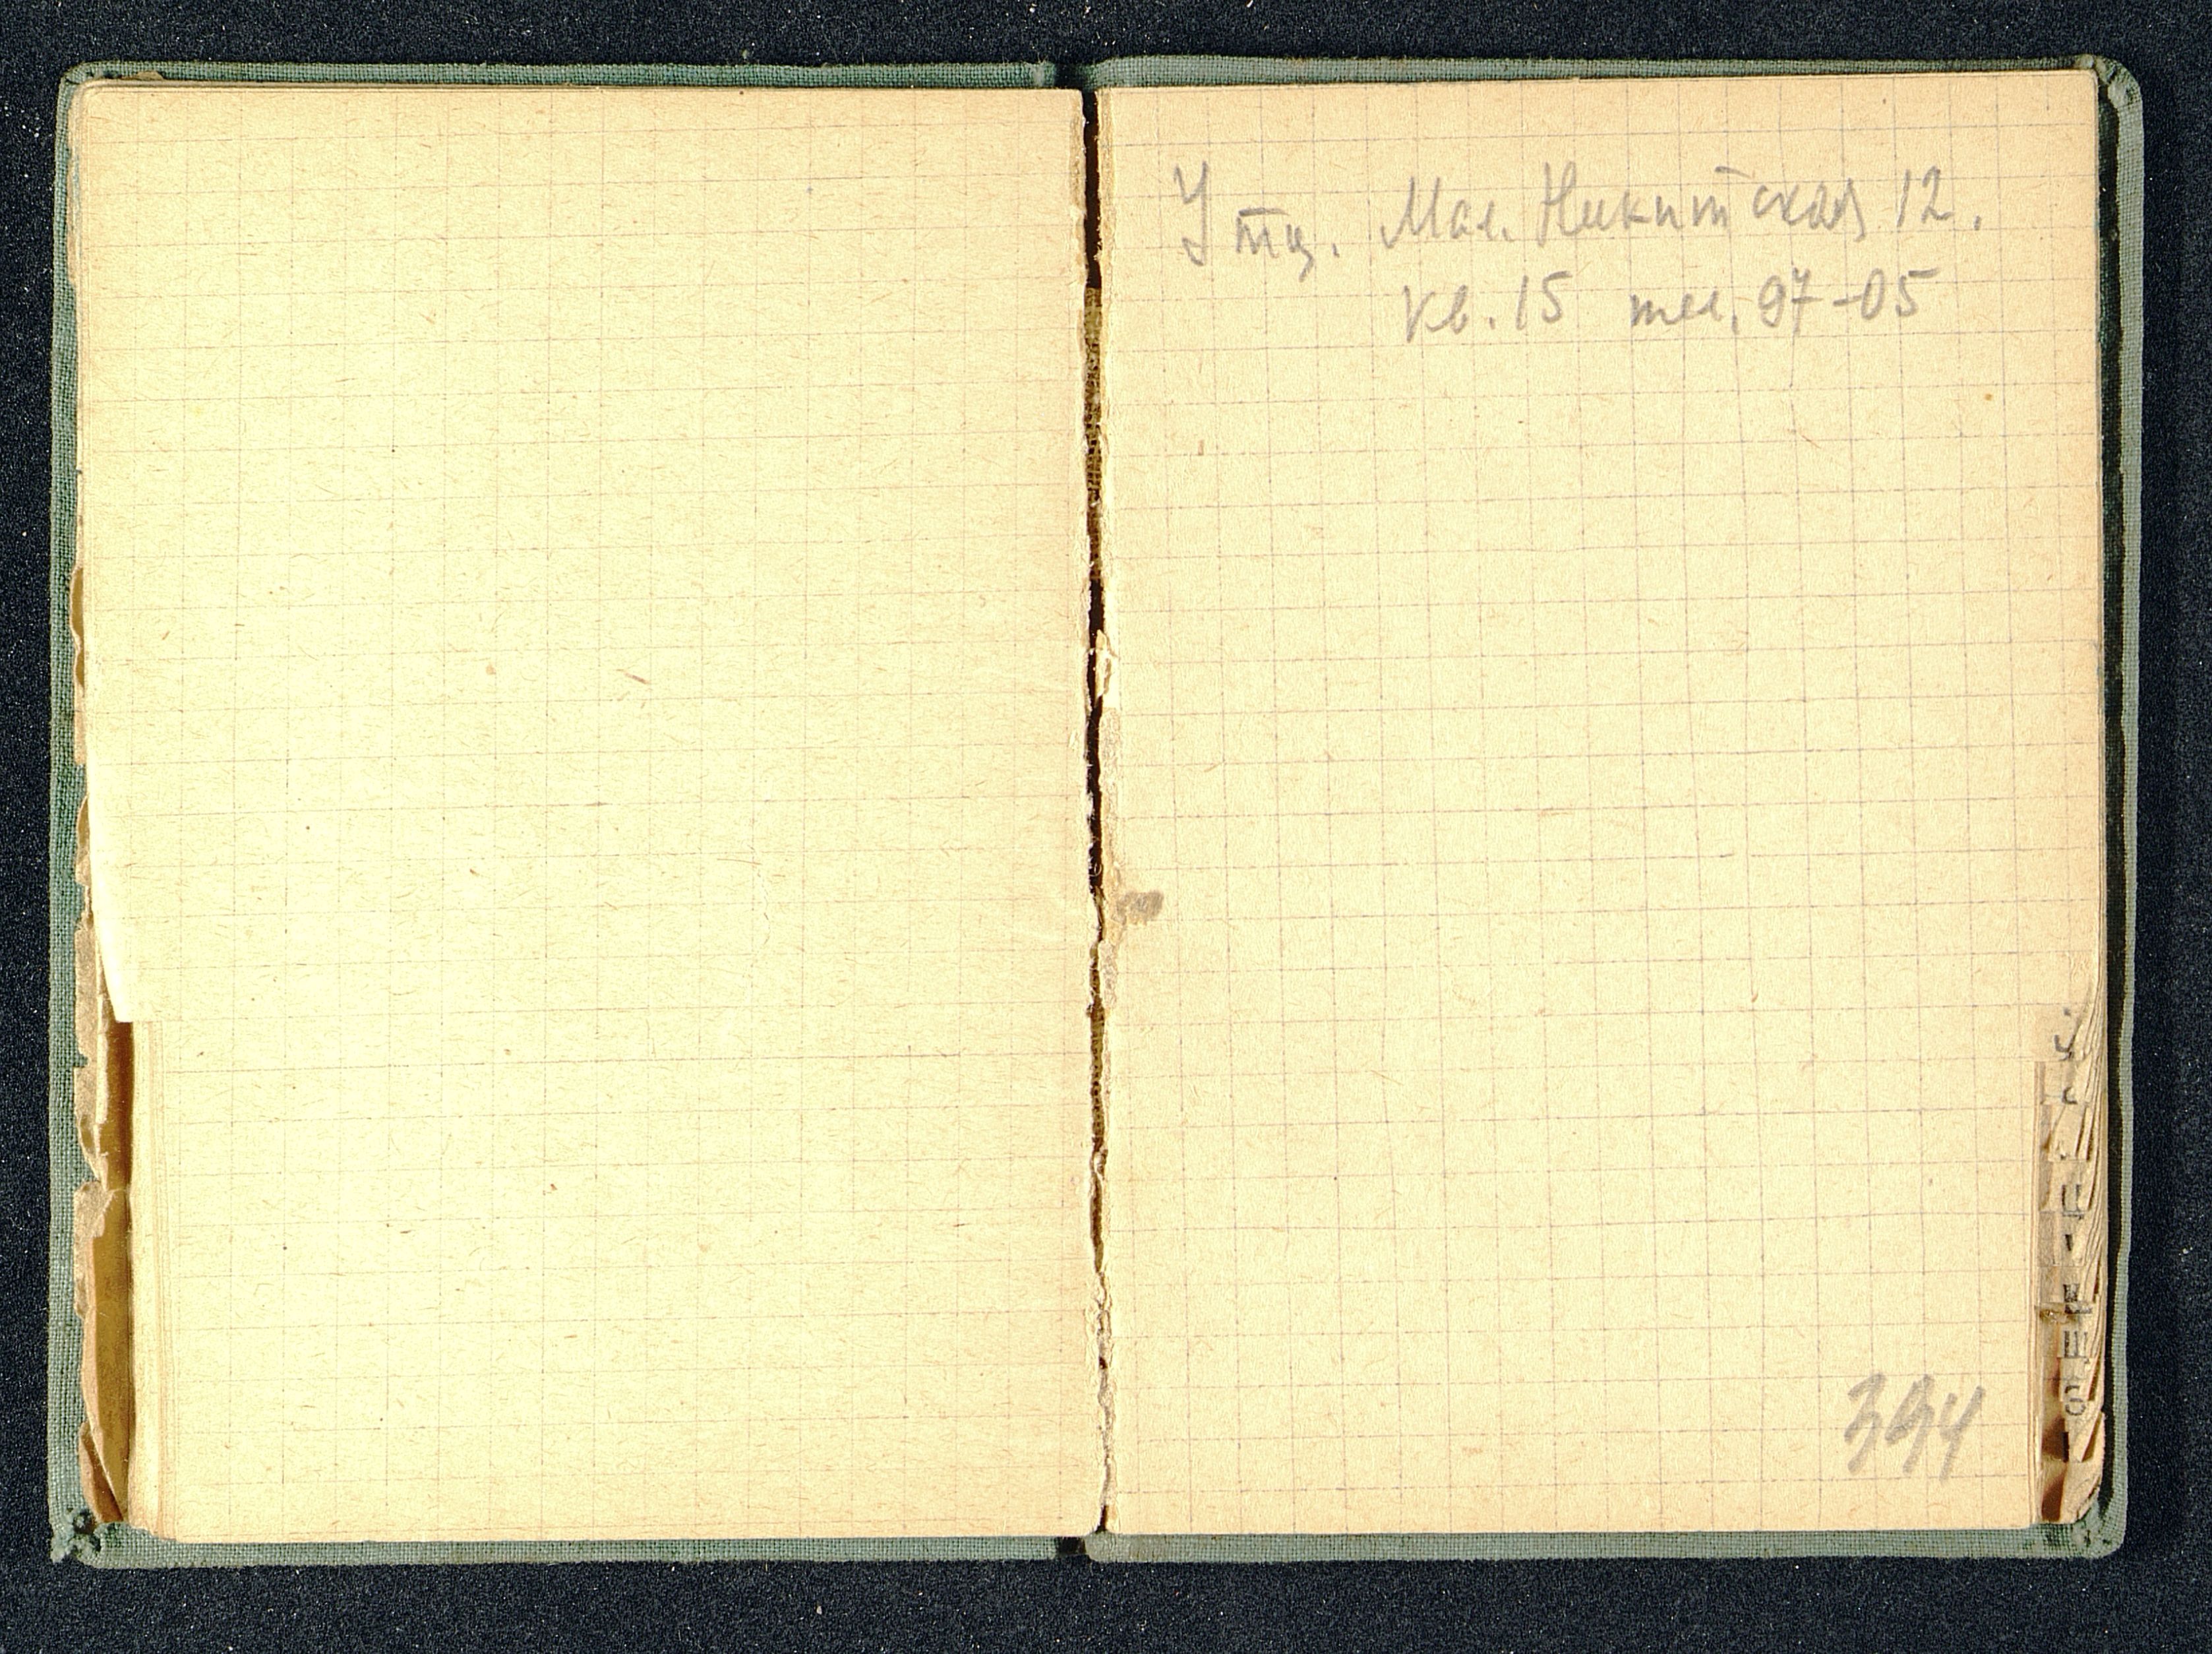 Утц. Мал. Никитская 12.
кв. 15 тел. 97-05
394